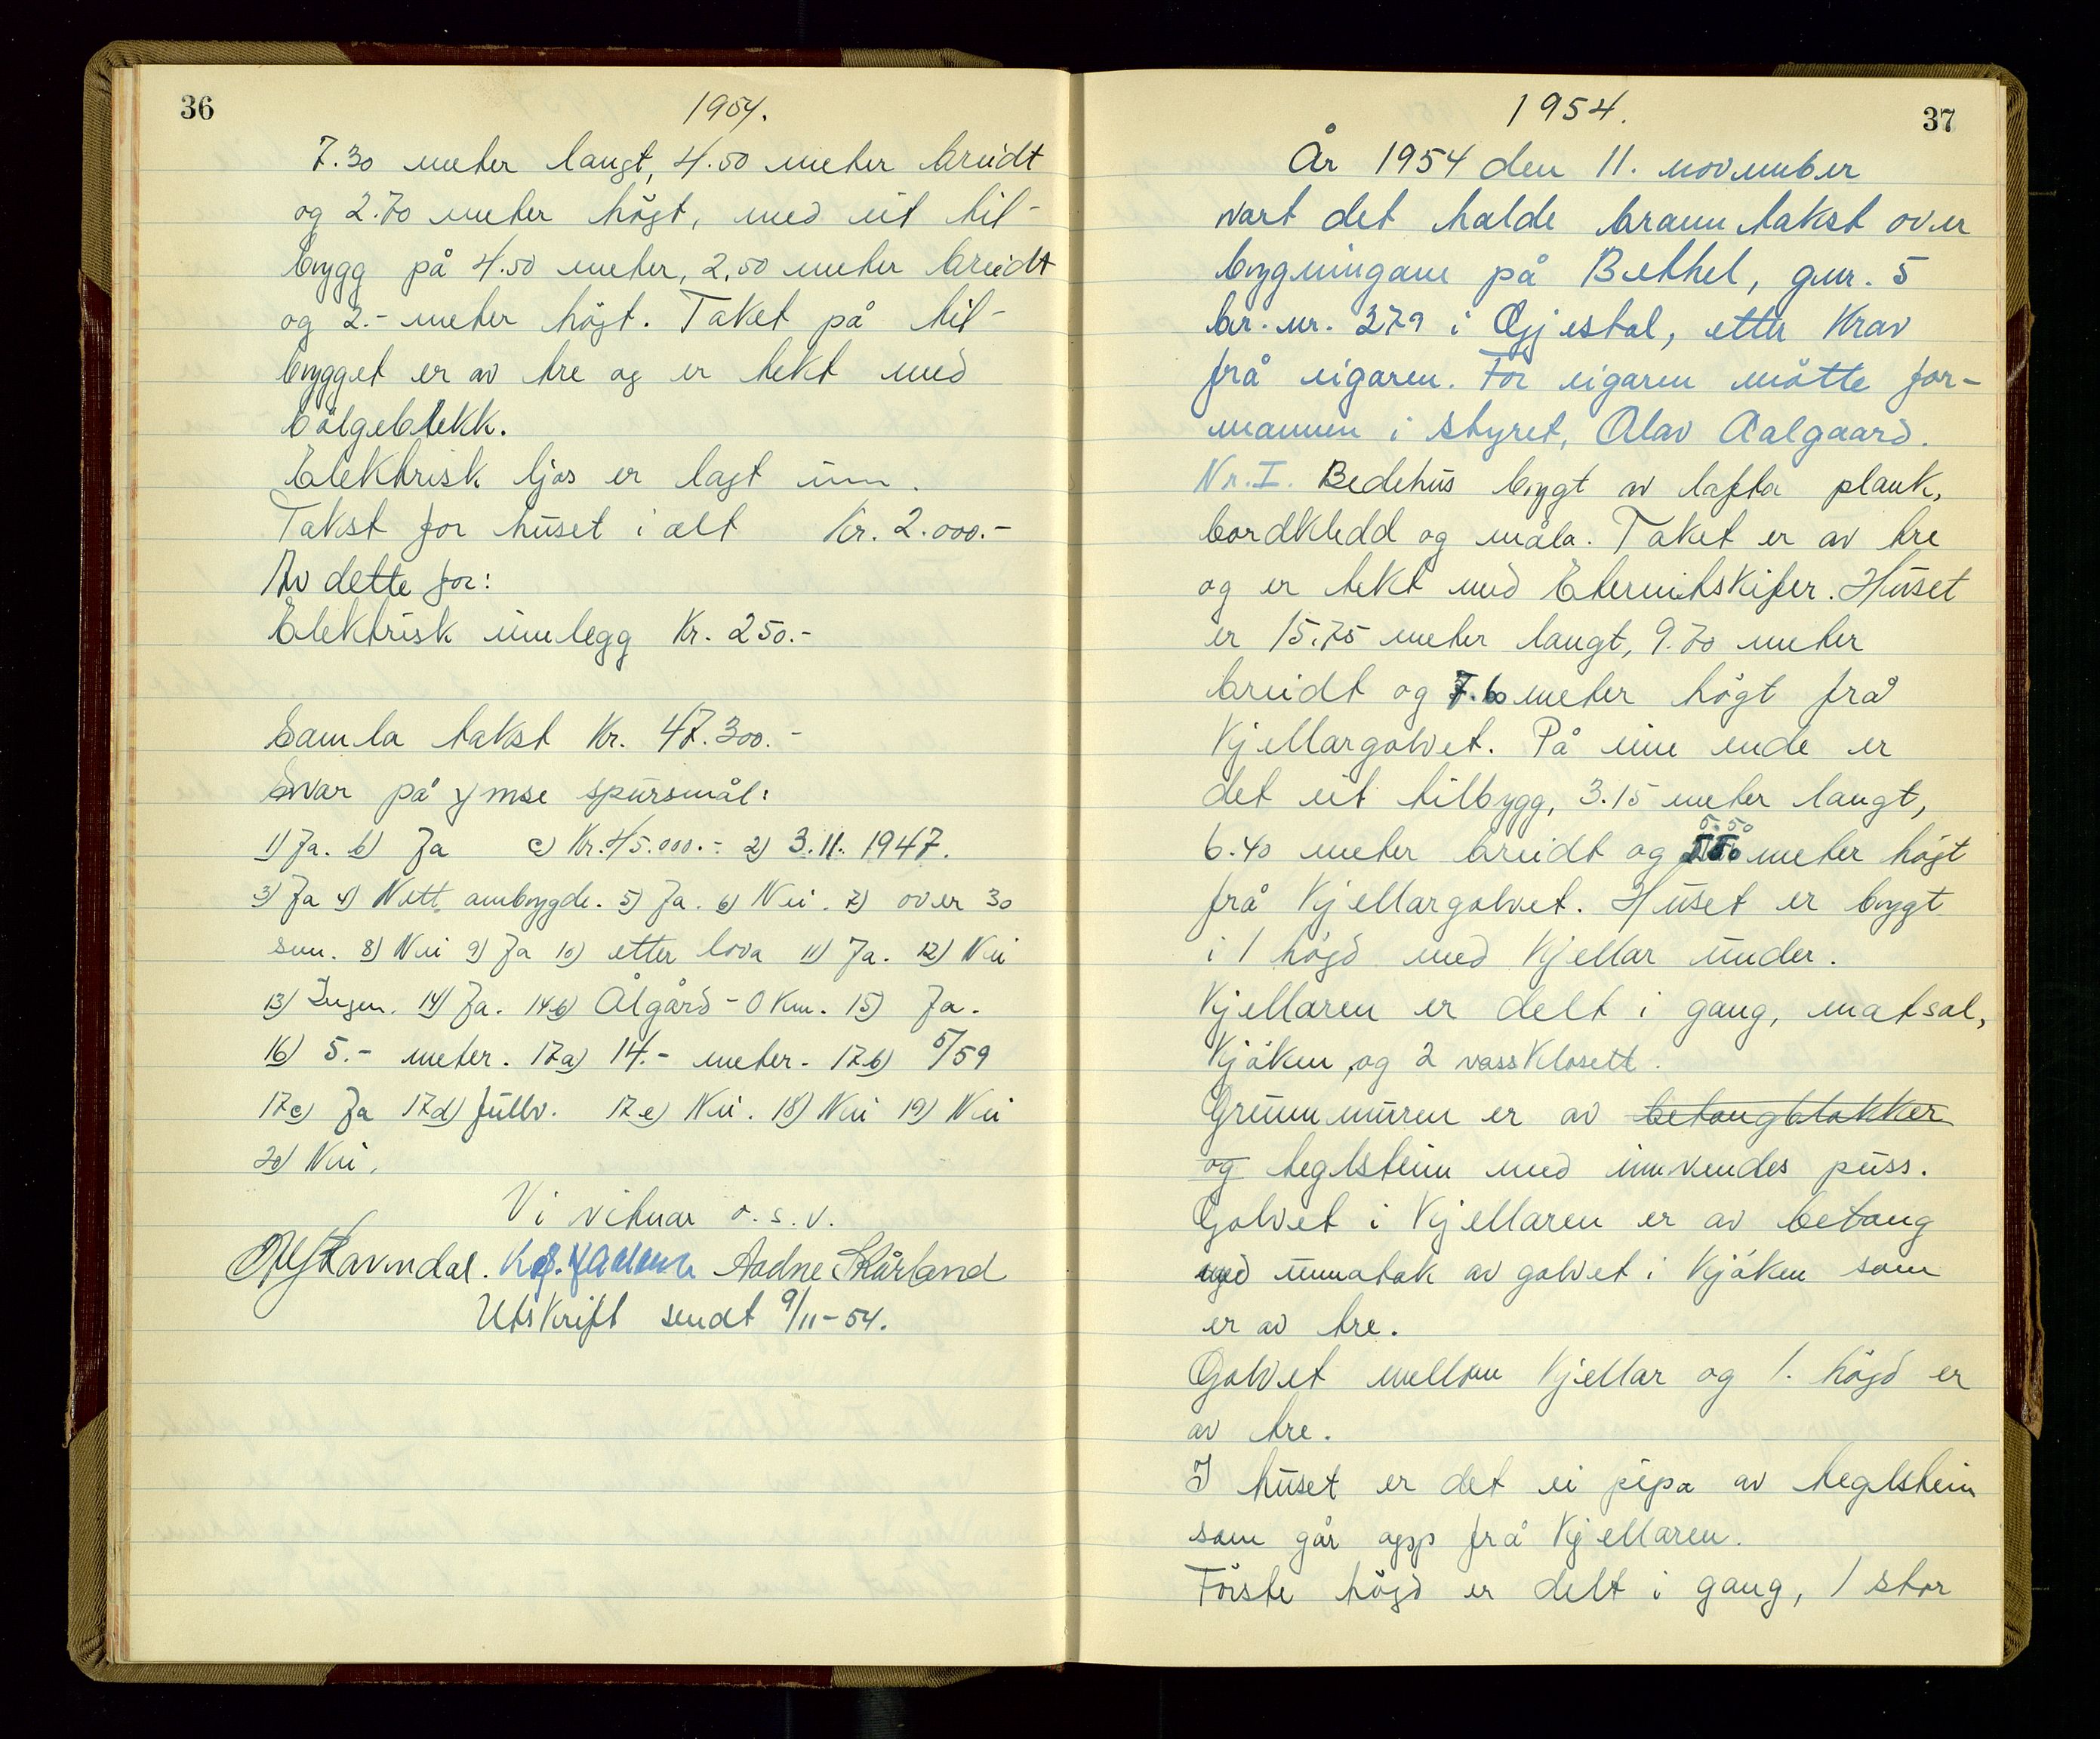 36
1954.
7.30 meter langt, 4.50 meter breidt
og 2.70 meter högt, med eit til-
bygg på 4.50 meter, 2,50 meter breidt
og 2.- meter högt. Taket på til-
bygget er av tre og er tekt med
bölgeblekk.
Elektrisk ljos er lagt inn.
Takst for huset i alt Kr. 2.000.-
Av dette for:
Elektrisk innlegg Kr. 250.-
Samla takst Kr. 47.300.-
Svar på ymse spursmål:
1) Ja. b) Ja c) Kr. 45.000.- 2) 3.11. 1947.
3) Ja 4) Nett ombygde. 5) Ja. 6) Nei. 7) over 30
sm. 8) Nei 9) Ja 10) etter lova 11) Ja. 12) Nei
13) Ingen. 14) Ja. 14b) Ålgård - 0 Km. 15) Ja.
16) 5.- meter. 17a) 14.- meter. 17b) 5/59
17c) Ja 17d) fullv. 17e) Nei. 18) Nei 19) Nei
20) Nei.
Vi vitnar o.s.v.
Ravndal. Aadne Skårland
Utskrift sendt 9/11-54.
1954.
37
År 1954 den 11. november
vart det halde branntakst over
bygningane på Bethel, gnr. 5
br. nr. 279 i Gjestal, etter krav
frå eigaren. For eigaren mötte for-
mannen i styret, Olav Aalgaard.
Nr. I. Bedehus bygt av lafta plank,
bordkledd og måla. Taket er av tre
og er tekt med Eternitskifer. Huset
er 15.75 meter langt, 9.70 meter
breidt og 7.60 meter högt frå
Kjellargolvet. På eine ende er
det eit tilbygg, 3.15 meter langt,
5.50
6.40 meter breidt og meter högt
frå Kjellargolvet. Huset er bygt
i 1 högd med Kjellar under.
Kjellaren er delt i gang, matsal,
Kjöken, og 2 vassklosett.
Grunnmuren er av betongblokker
og teglstein med innvendes puss.
Golvet i Kjellaren er av betong
med unnatak av golvet i Kjöken som
er av tre.
Golvet mellom Kjellar og 1. högd er
av tre.
I huset er det ei pipa av teglstein
som går opp frå Kjellaren.
Förste högd er delt i gang, 1 stor